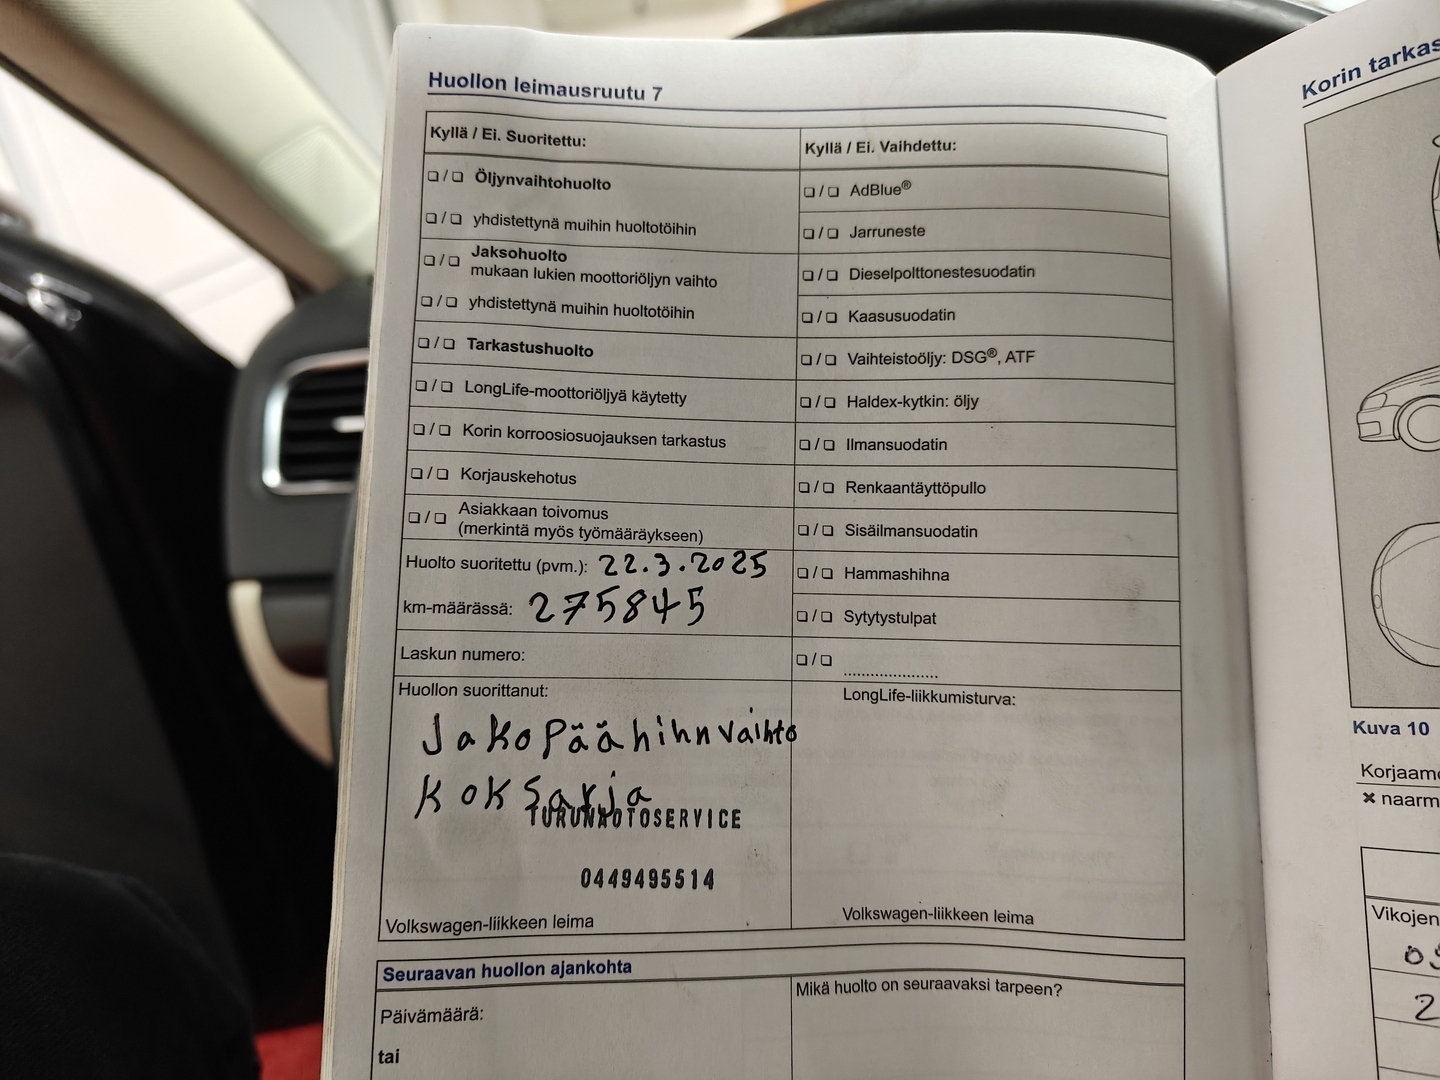 Huollon leimausruutu 7
Kyllä / Ei. Suoritettu:
❏ / ❏ Öljynvaihtohuolto
❏ / ❏ yhdistettynä muihin huoltotöihin
❏ / ❏ Jaksohuolto
mukaan lukien moottoriöljyn vaihto
❏ / ❏ yhdistettynä muihin huoltotöihin
❏ / ❏ Tarkastushuolto
❏ / ❏ LongLife-moottoriöljyä käytetty
❏ / ❏ Korin korroosiosuojauksen tarkastus
❏ / ❏ Korjauskehotus
❏ / ❏ Asiakkaan toivomus
(merkintä myös työmääräykseen)
Huolto suoritettu (pvm.): 22.3.2025
km-määrässä: 275845
Laskun numero:
Huollon suorittanut:
Jakopäähihnvaihto
koksarja
TURUNAUTOSERVICE
0449495514
Volkswagen-liikkeen leima
Kyllä / Ei. Vaihdettu:
❏ / ❏ AdBlue®
❏ / ❏ Jarruneste
❏ / ❏ Dieselpolttonestesuodatin
❏ / ❏ Kaasusuodatin
❏ / ❏ Vaihteistoöljy: DSG®, ATF
❏ / ❏ Haldex-kytkin: öljy
❏ / ❏ Ilmansuodatin
❏ / ❏ Renkaantäyttöpullo
❏ / ❏ Sisäilmansuodatin
❏ / ❏ Hammashihna
❏ / ❏ Sytytystulpat
❏ / ❏ .....................
LongLife-liikkumisturva:
Volkswagen-liikkeen leima
Seuraavan huollon ajankohta
Päivämäärä:
tai
Mikä huolto on seuraavaksi tarpeen?
Korin tarkas
Kuva 10
Korjaamo
✖ naarm
Vikojen